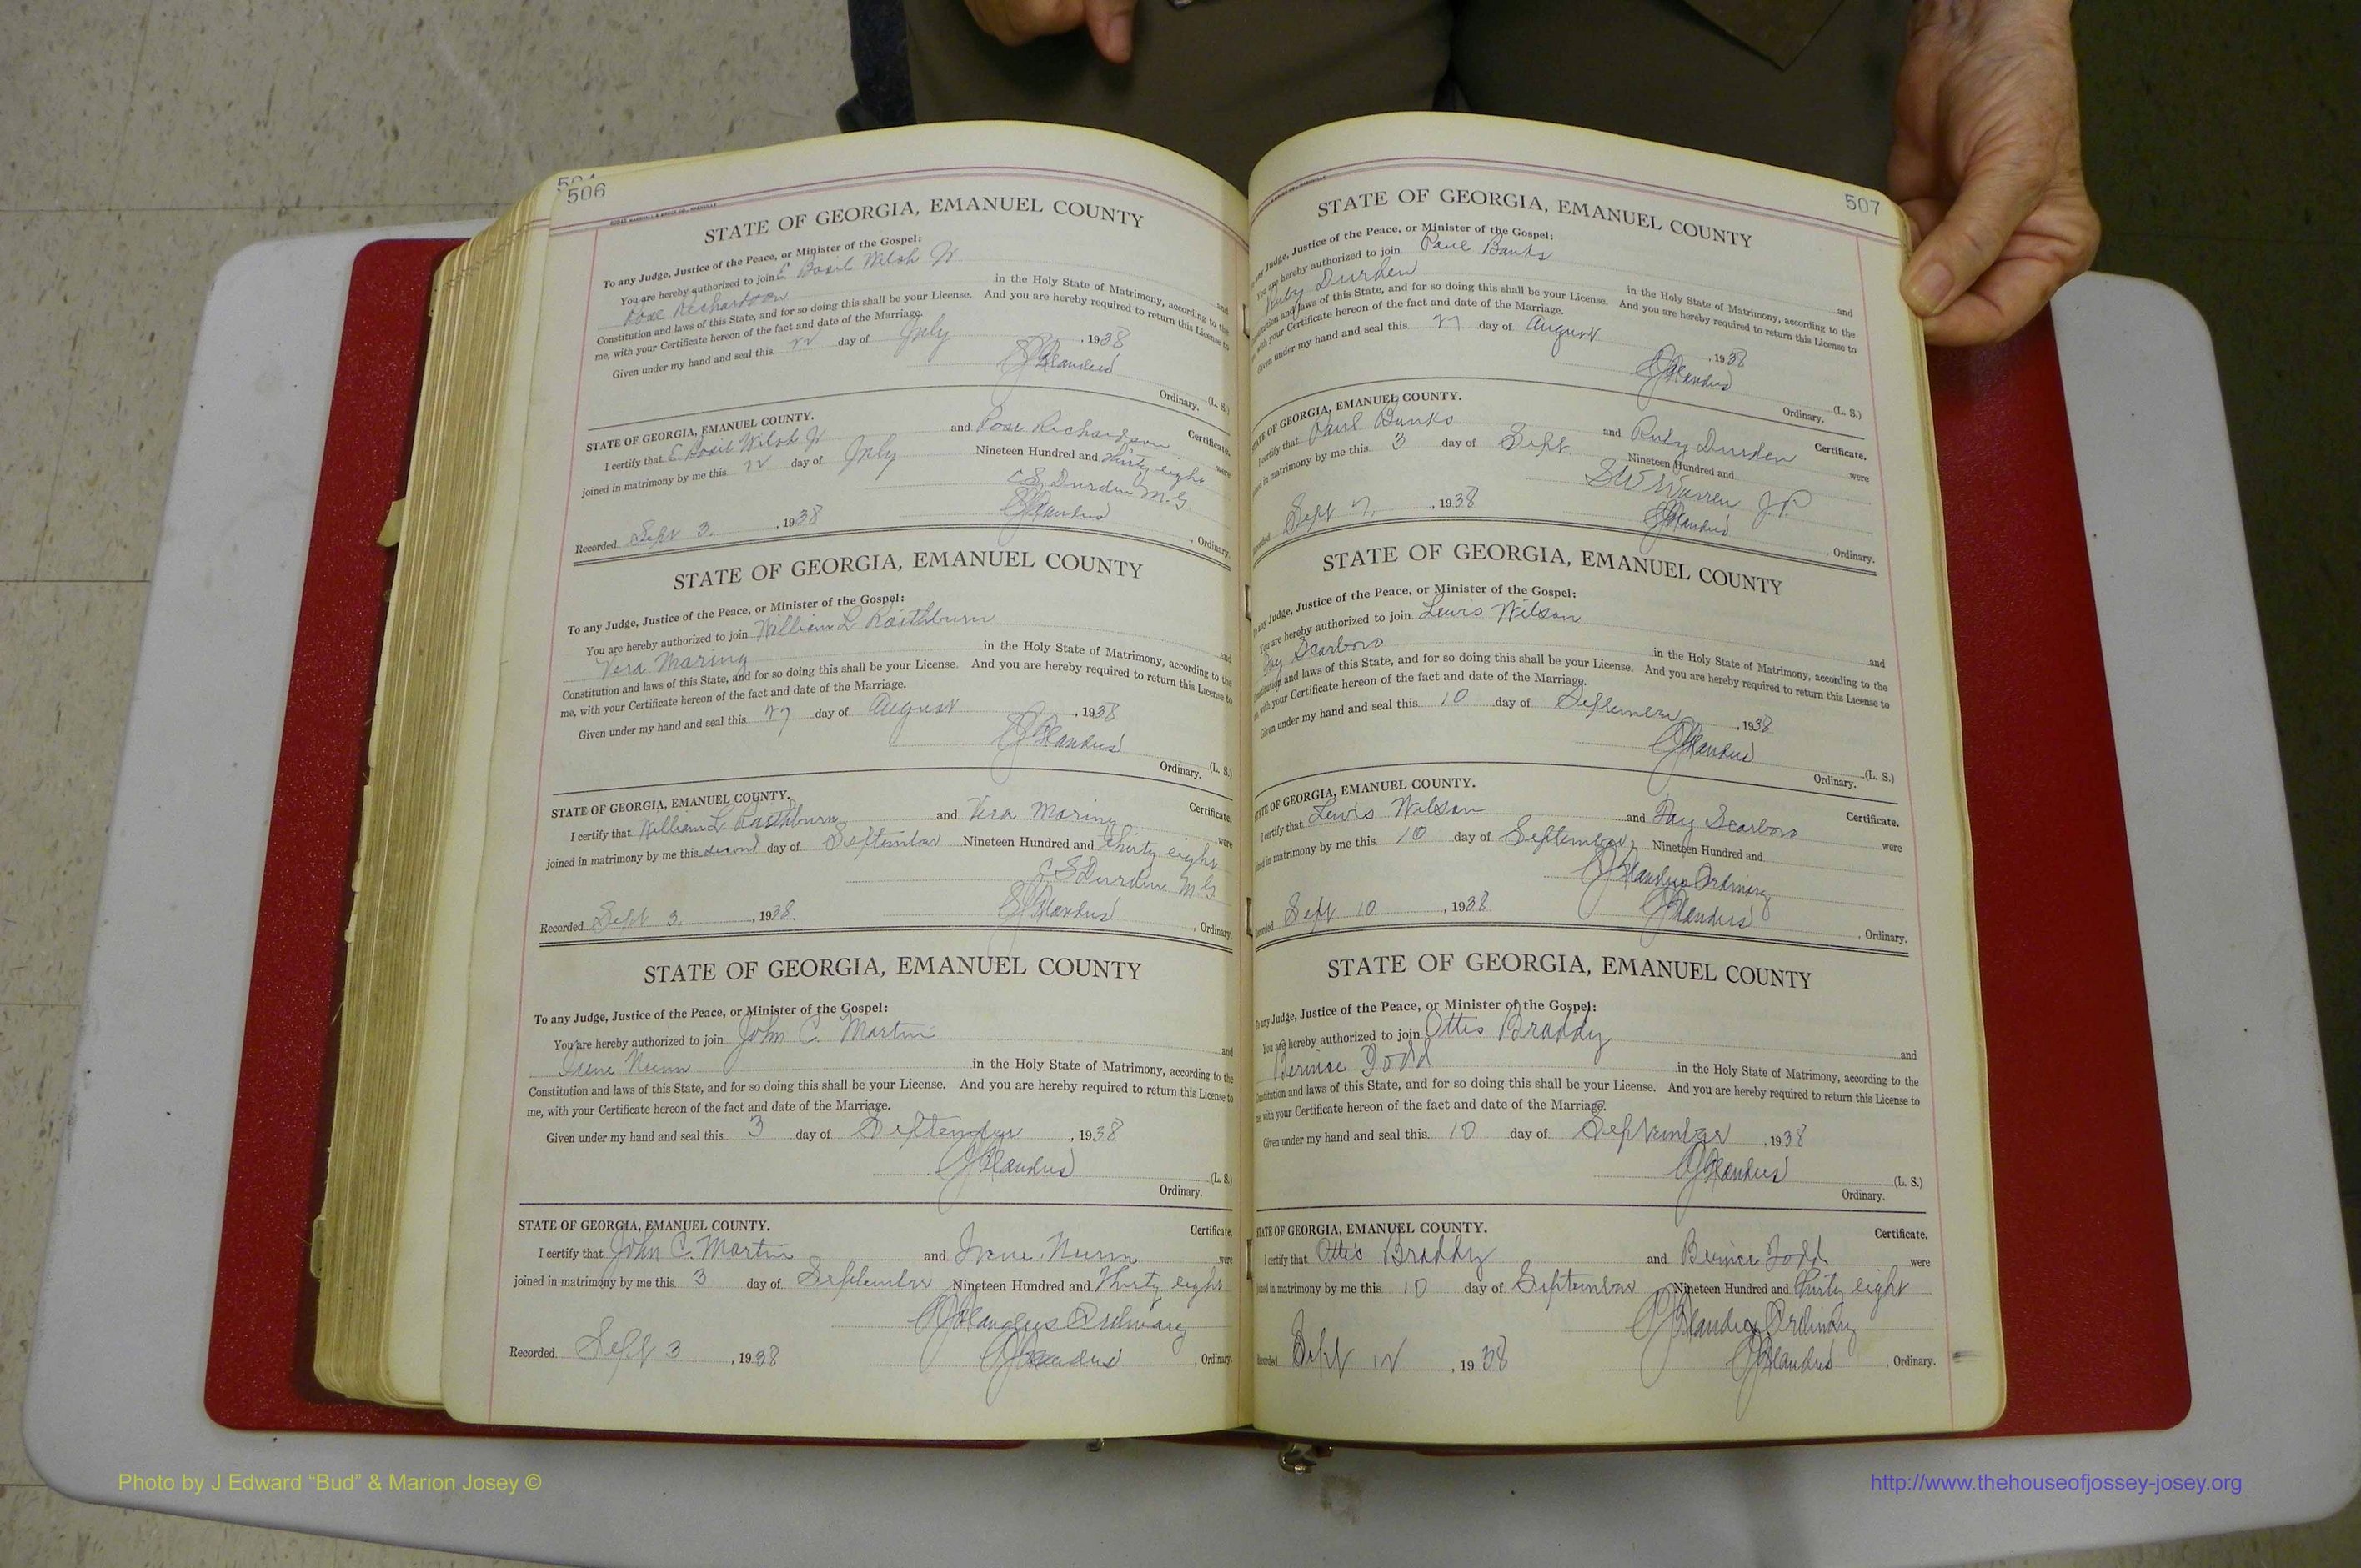 504
506
STATE OF GEORGIA, EMANUEL COUNTY
To any Judge, Justice of the Peace, or Minister of the Gospel:
You are hereby authorized to join E. Basil Welsh Jr and
Rose Richardson in the Holy State of Matrimony, according to the
Constitution and laws of this State, and for so doing this shall be your License. And you are hereby required to return this License to
me, with your Certificate hereon of the fact and date of the Marriage.
Given under my hand and seal this 22 day of July, 1938
(L. S.)
Ordinary.
STATE OF GEORGIA, EMANUEL COUNTY. Certificate.
I certify that E. Basil Welsh Jr and Rose Richardson were
joined in matrimony by me this 22 day of July Nineteen Hundred and thirty eight
C S. Durden M. G.
Recorded Sept 3. , 1938 , Ordinary.
STATE OF GEORGIA, EMANUEL COUNTY
To any Judge, Justice of the Peace, or Minister of the Gospel:
You are hereby authorized to join William L Raithburn and
Vera Maring in the Holy State of Matrimony, according to the
Constitution and laws of this State, and for so doing this shall be your License. And you are hereby required to return this License to
me, with your Certificate hereon of the fact and date of the Marriage.
Given under my hand and seal this 27 day of August, 1938
(L. S.)
Ordinary.
STATE OF GEORGIA, EMANUEL COUNTY. Certificate.
I certify that William L Raithburn and Vera Maring were
joined in matrimony by me this second day of September Nineteen Hundred and thirty eight
C S Durden M G
Recorded Sept 3. , 1938. , Ordinary.
STATE OF GEORGIA, EMANUEL COUNTY
To any Judge, Justice of the Peace, or Minister of the Gospel:
You are hereby authorized to join John C. Martin and
Irene Nunn in the Holy State of Matrimony, according to the
Constitution and laws of this State, and for so doing this shall be your License. And you are hereby required to return this License to
me, with your Certificate hereon of the fact and date of the Marriage.
Given under my hand and seal this 3 day of September, 1938
(L. S.)
Ordinary.
STATE OF GEORGIA, EMANUEL COUNTY. Certificate.
I certify that John C. Martin and Irene Nunn were
joined in matrimony by me this 3 day of September Nineteen Hundred and Thirty eight
Ordinary
Recorded Sept 3 , 1938 , Ordinary.
507
STATE OF GEORGIA, EMANUEL COUNTY
any Judge, Justice of the Peace, or Minister of the Gospel:
You are hereby authorized to join Paul Banks and
Ruby Durden in the Holy State of Matrimony, according to the
Constitution and laws of this State, and for so doing this shall be your License. And you are hereby required to return this License to
with your Certificate hereon of the fact and date of the Marriage.
Given under my hand and seal this 27 day of August, 1938
(L. S.)
Ordinary.
STATE OF GEORGIA, EMANUEL COUNTY. Certificate.
I certify that Paul Banks and Ruby Durden were
joined in matrimony by me this 3 day of Sept. Nineteen Hundred and
S W Warren J. P
Recorded Sept 7, , 1938 , Ordinary.
STATE OF GEORGIA, EMANUEL COUNTY
To any Judge, Justice of the Peace, or Minister of the Gospel:
You are hereby authorized to join Lewis Wilson and
Fay Scarboro in the Holy State of Matrimony, according to the
Constitution and laws of this State, and for so doing this shall be your License. And you are hereby required to return this License to
with your Certificate hereon of the fact and date of the Marriage.
Given under my hand and seal this 10 day of September, 1938
(L. S.)
Ordinary.
STATE OF GEORGIA, EMANUEL COUNTY. Certificate.
I certify that Lewis Wilson and Fay Scarboro were
joined in matrimony by me this 10 day of September, Nineteen Hundred and
Ordinary
Recorded Sept 10 , 1938. , Ordinary.
STATE OF GEORGIA, EMANUEL COUNTY
To any Judge, Justice of the Peace, or Minister of the Gospel:
You are hereby authorized to join Ottis Braddy and
Bernice Todd in the Holy State of Matrimony, according to the
Constitution and laws of this State, and for so doing this shall be your License. And you are hereby required to return this License to
me, with your Certificate hereon of the fact and date of the Marriage.
Given under my hand and seal this 10 day of September, 1938
(L. S.)
Ordinary.
STATE OF GEORGIA, EMANUEL COUNTY. Certificate.
I certify that Ottis Braddy and Bernice Todd were
joined in matrimony by me this 10 day of September Nineteen Hundred and thirty eight
Ordinary
Recorded Sept 12 , 1938 , Ordinary.
Photo by J Edward “Bud” & Marion Josey ©
http://www.thehouseofjossey-josey.org